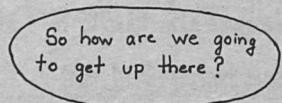 So how are we going
to get up there?